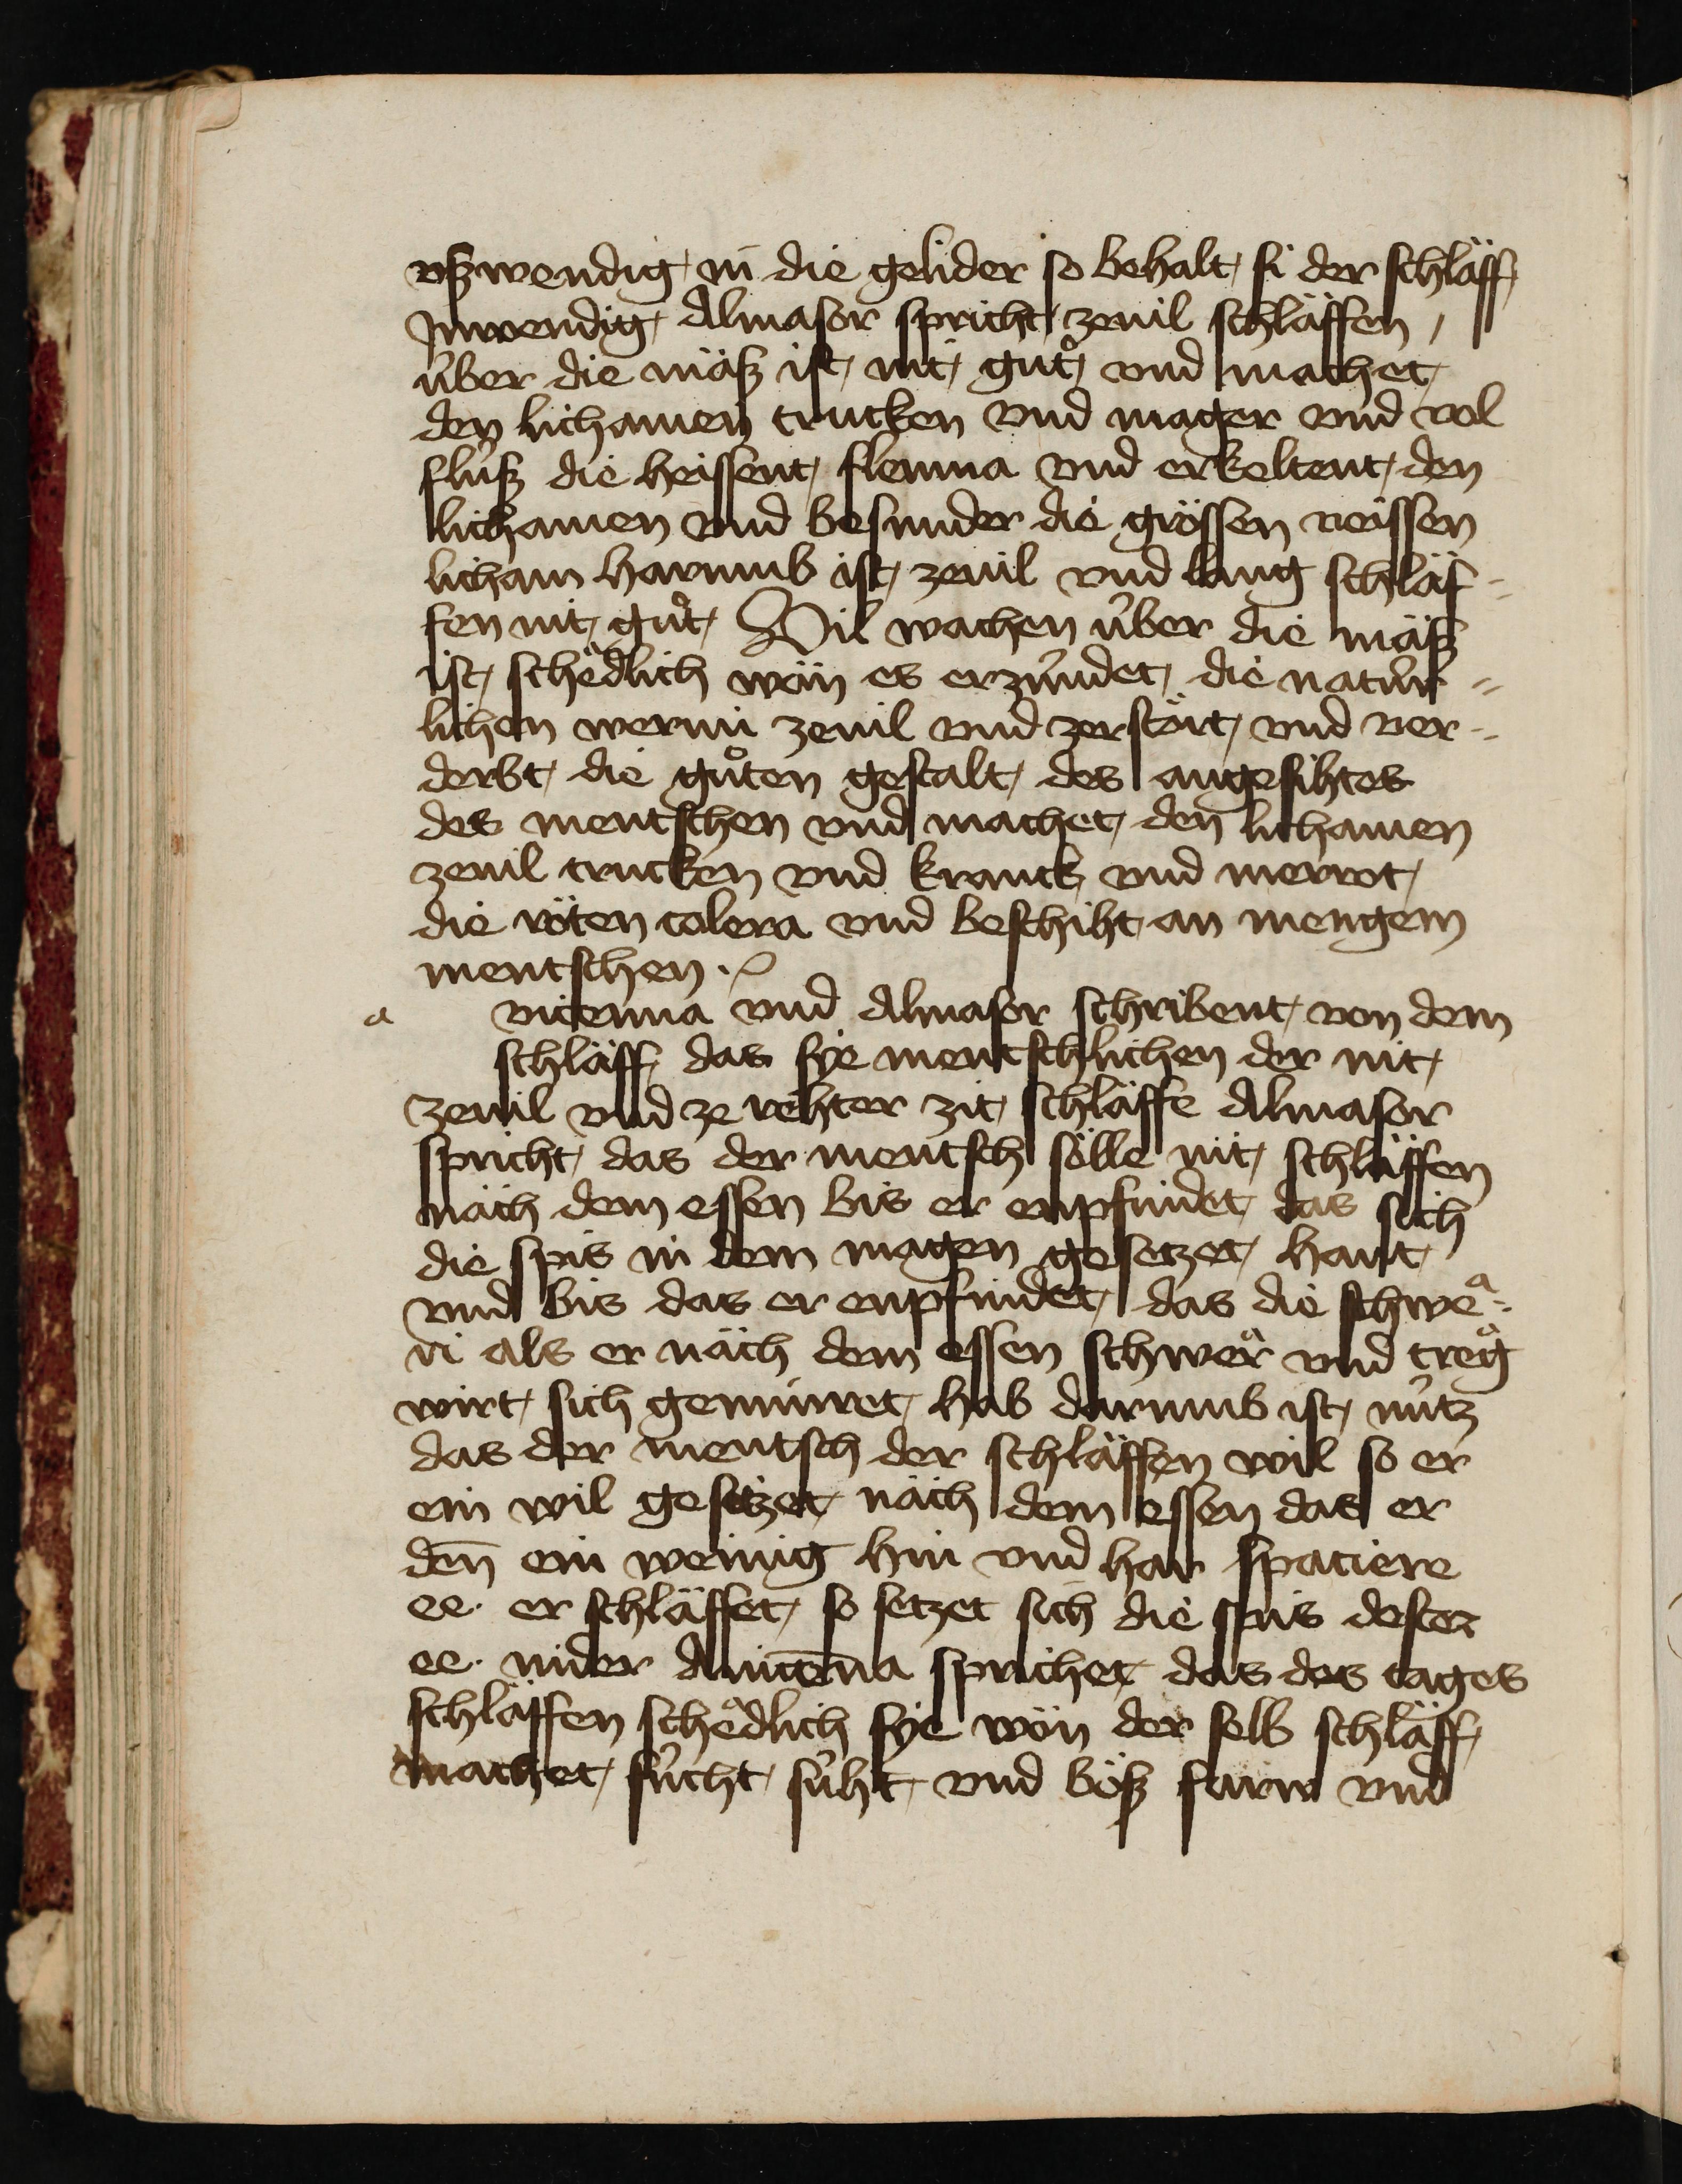 vßwendig in die gelider so behalt si der schläff
Jnwendig Almasor spricht zevil schläffen
über die mäß ist nit guͦt vnd machet
den lichamen trucken vnd mager vnd vol
flúß die heissent flemma vnd erkeltent den
lichamen vnd besunder die grössen veissen
licham harumb ist zevil vnd lang schläf-
fen nit guͦt Vil wachen über die mäß
ist scheͣdlich wän es erzúndet die natúr=
lichen wermi zevil vnd zerstört vnd ver=
derbt die guͦten gestalt des angesihtes
des mentschen vnd machet den lichamen
zevil trucken vnd kranck vnd merrot
die röten colera vnd beschiht an mengem
mentschen
a vicenna vnd Almasor schribent von dem
schläff das sye mentschlichen der nit
zevil vnd ze rehter zit schläffe Almasor
spricht das der mentsch sölle nit schläffen
näch dem essen bis er enpfindet das sich
die spis in dem magen gesetzet hant
vnd bis das er enpfindet das die schweͣ=
ri als er näch dem essen schweͣr vnd treͣg
wirt sich geminret hab darumb ist nútz
das der mentsch der schläffen wil so er
ein wil gesitzet näch dem essen das er
den̄ ein wening hin vnd har spaciere
ee er schläffet so setzet sich die spis dester
ee nider Auicen̄a sprichet das des tages
schläffen scheͣdlich sye wän der selb schläff
machet fúcht súht vnd böß farw vnd